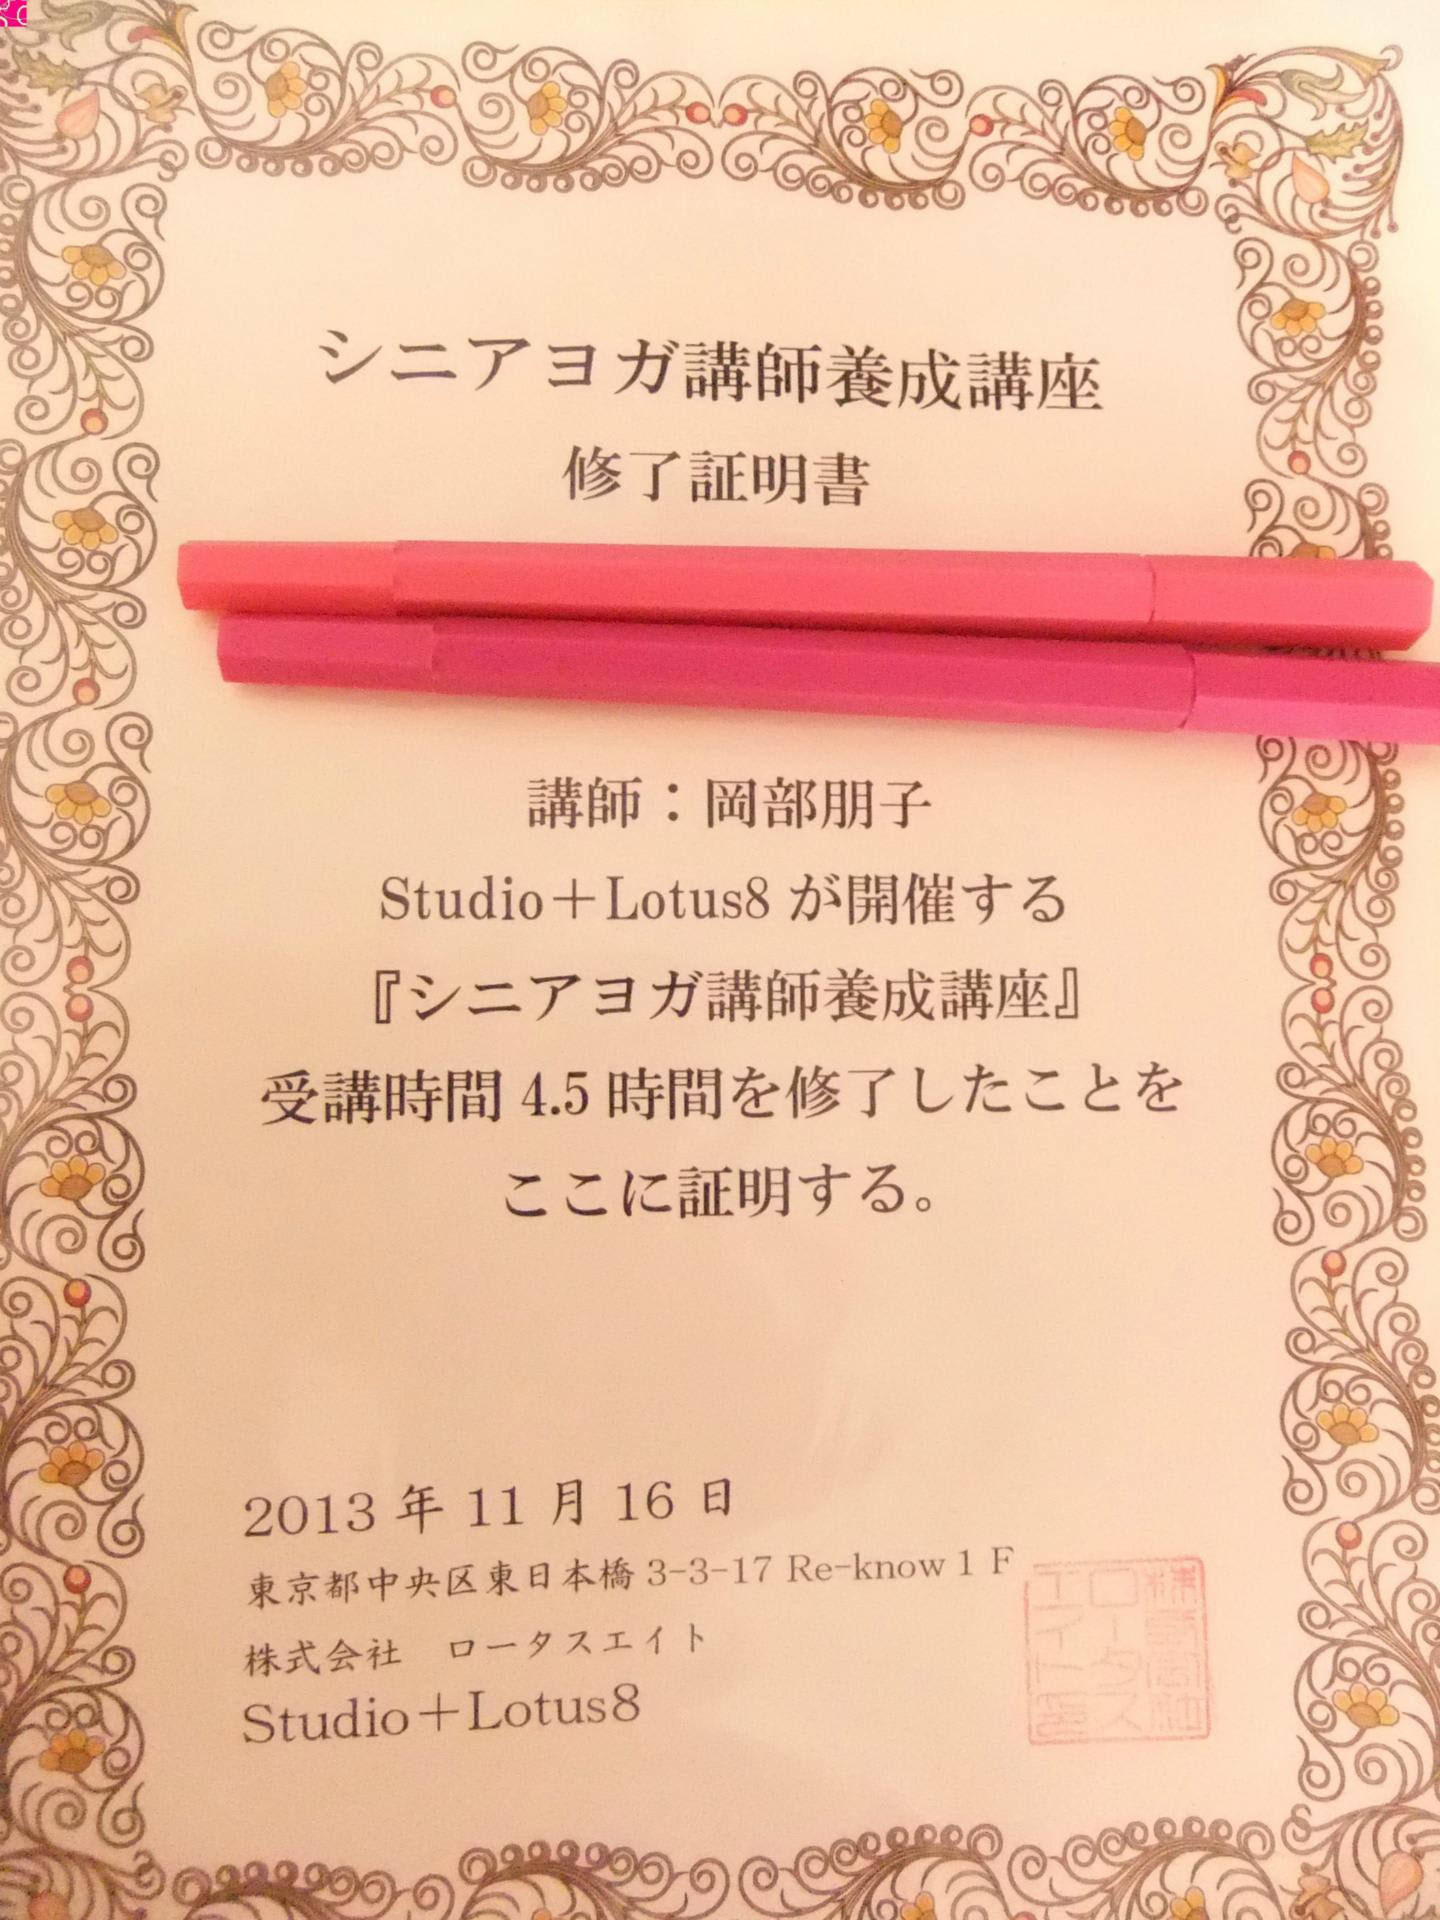 シニアヨガ講師養成講座
修了証明書
講師：岡部朋子
Studio＋Lotus8 が開催する
『シニアヨガ講師養成講座』
受講時間 4.5 時間を修了したことを
ここに証明する。
2013 年 11 月 16 日
東京都中央区東日本橋 3-3-17 Re-know 1 F
株式会社　ロータスエイト
Studio＋Lotus8
株式会社
ロータス
エイト